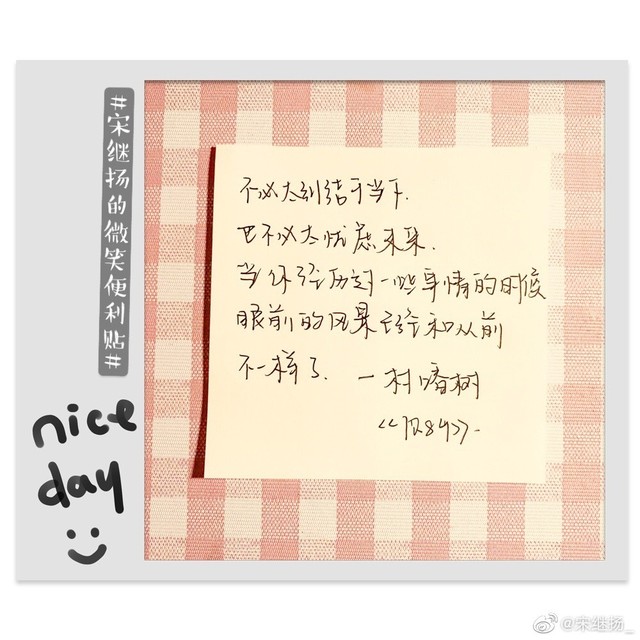 #宋继扬的微笑便利贴#
不必太纠结于当下.
也不必太忧虑未来.
当你经历过一些事情的时候
眼前的风景已经和从前
不一样了. 一村上春树
<<1Q84>>-
nice
day
@宋继扬_